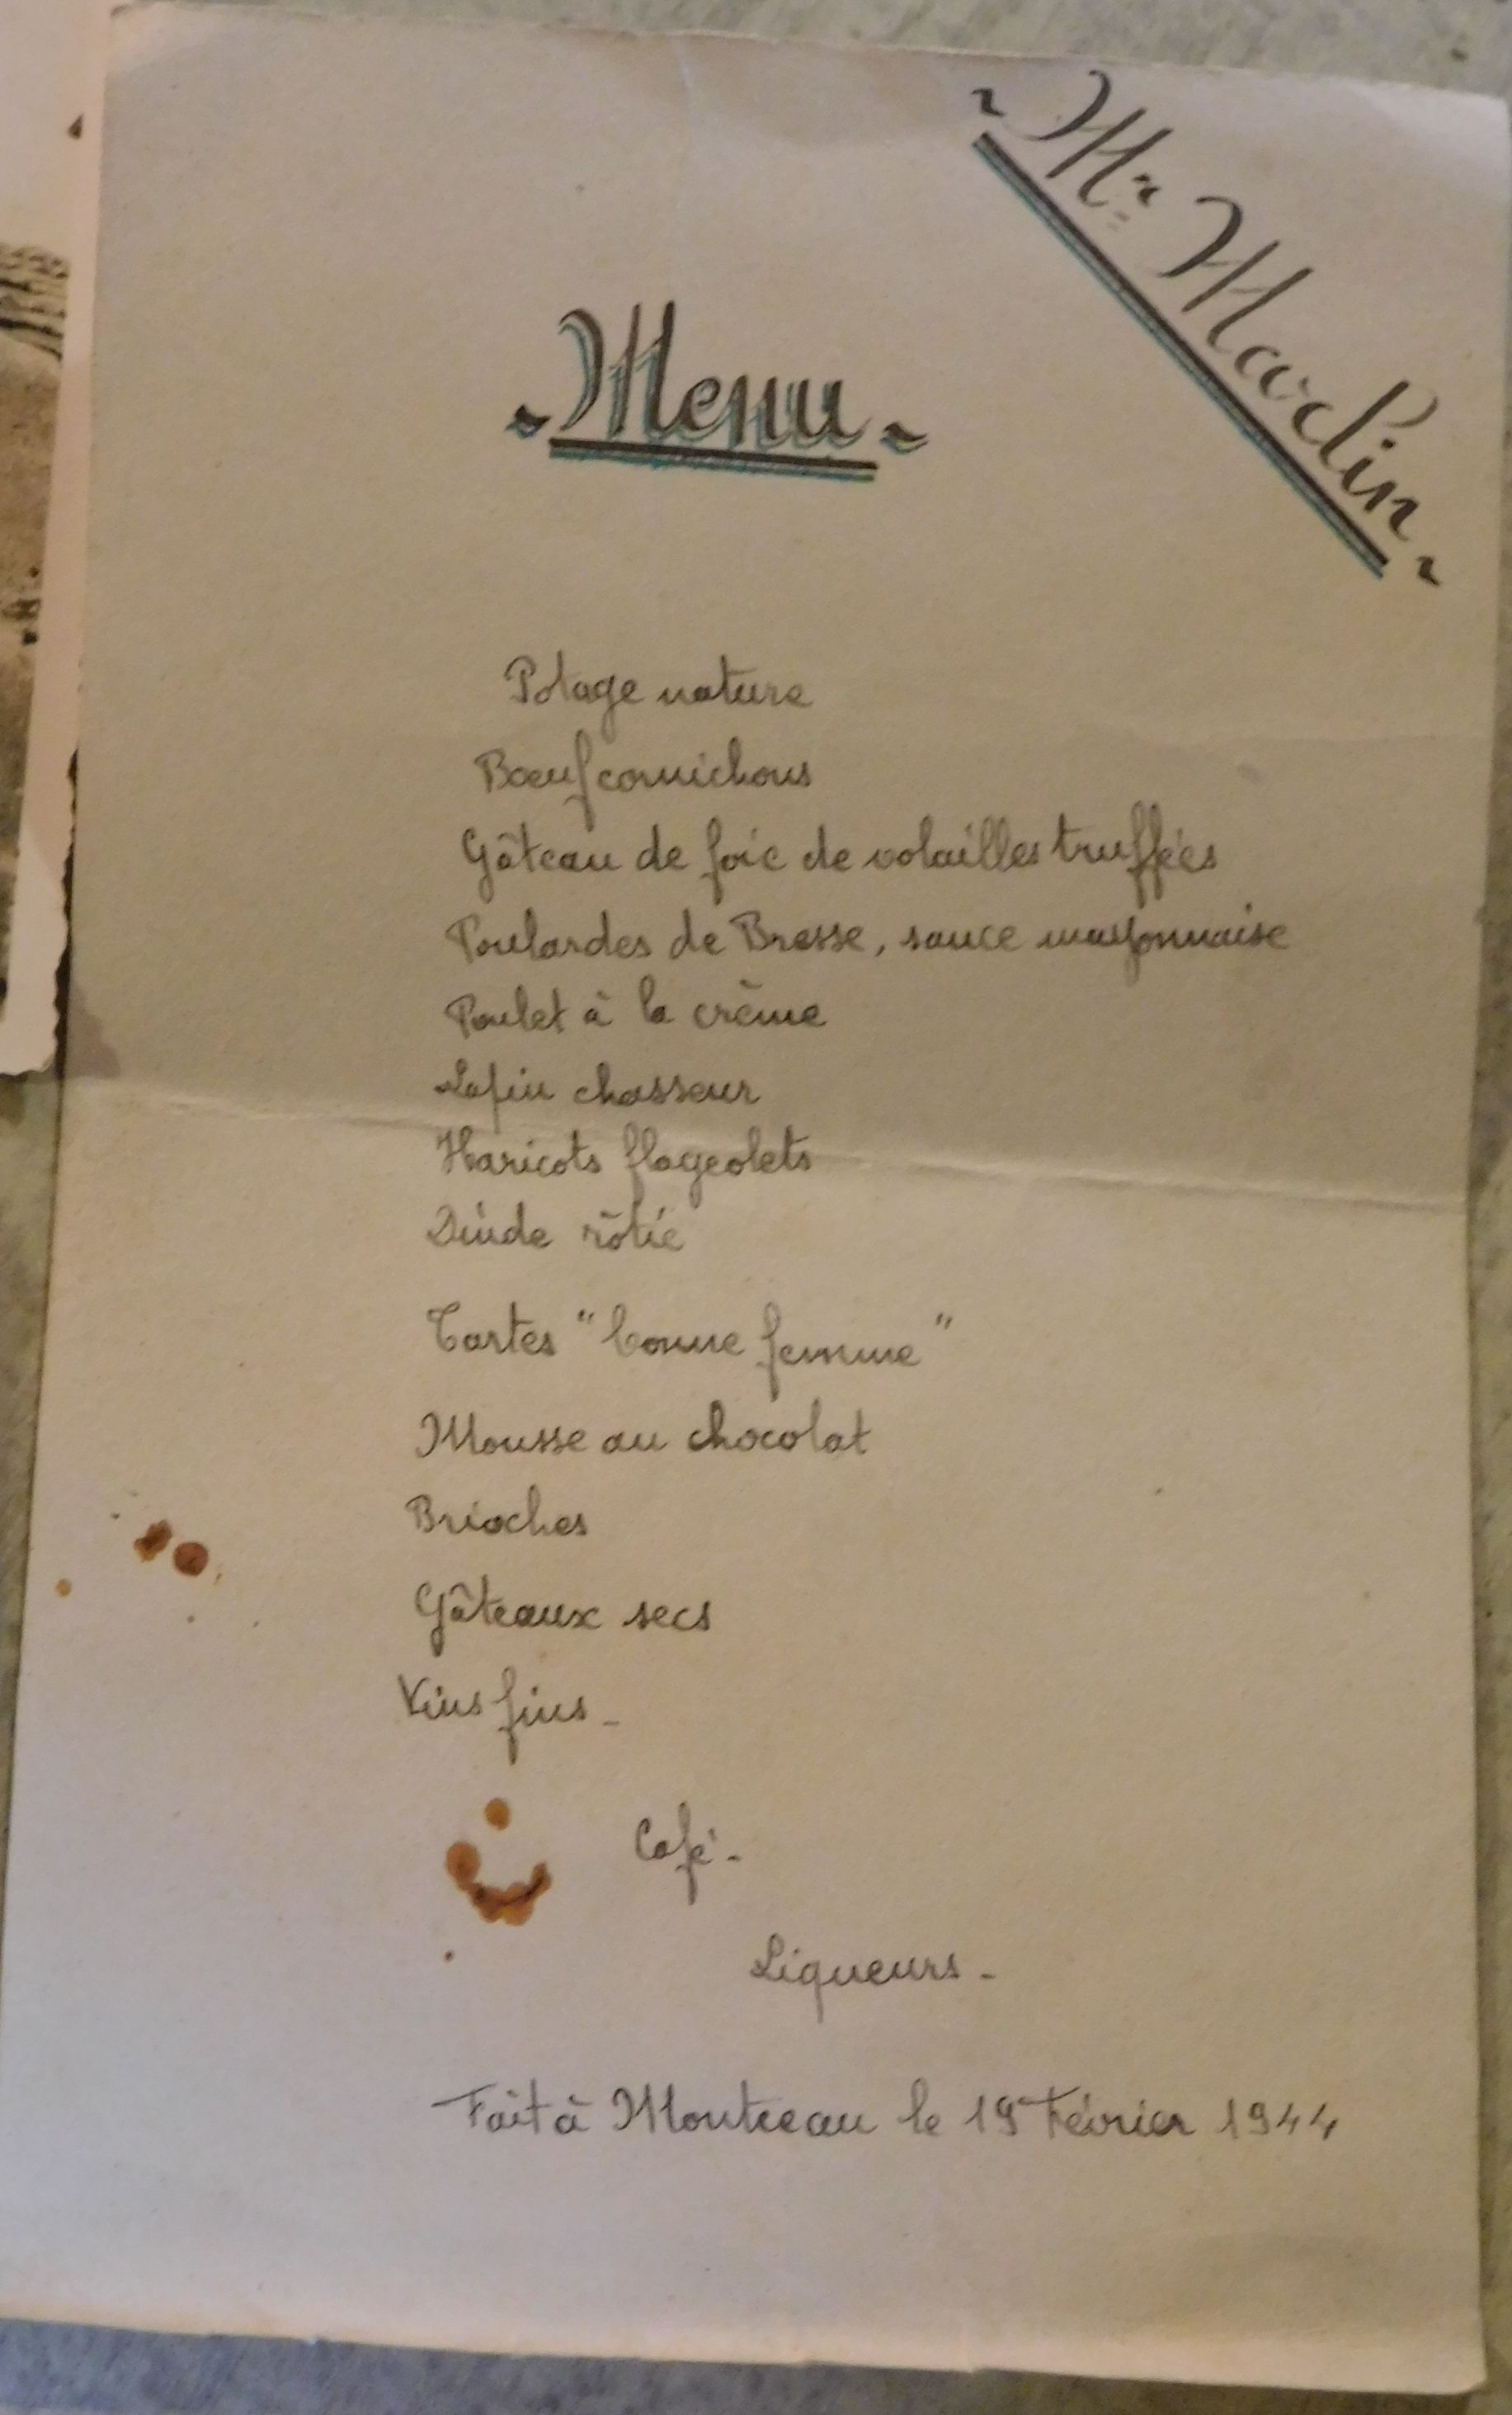 ~ Mr Marlin ~
~ Menu ~
Potage nature
Boeuf cornichons
Gâteau de foie de volailles truffées
Poulardes de Bresse, sauce mayonnaise
Poulet à la crème
Lapin chasseur
Haricots flageolets
Dinde rôtie
Tartes "bonne femme"
Mousse au chocolat
Brioches
Gâteaux secs
Vins fins -
Café -
Liqueurs -
Fait à Montceau le 19 Février 1944